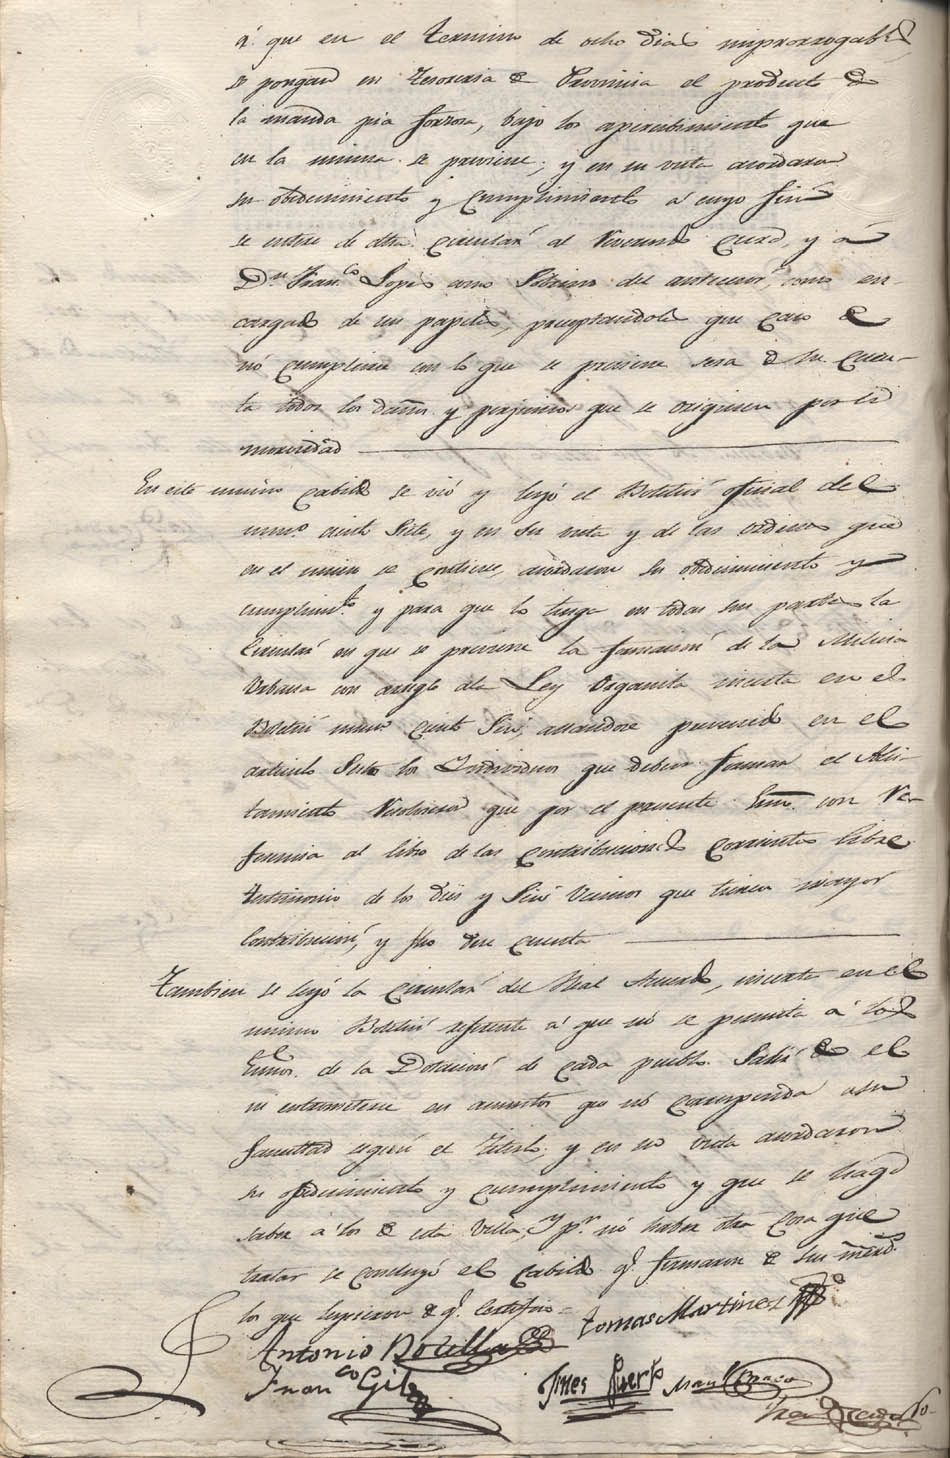 á que en el termino de ocho dias improrrogables
se pongan en Tesoreria de Provincia el producto de
la manda pia forzosa, bajo los apercebimientos que
en la misma se previene; y en su vista acordaron
su obedecimiento y cumplimiento á cuyo fin
se entere de dha. circular al Reverendo Cura, y á
Dn. Franco. Lopes como Sobrino del antecesor, como en-
cargado de sus papeles, preceptuandoles que caso de
nó cumplirse con lo que se previene sera de su cuen-
ta todos los daños y perjuicios que se originen por la
morosidad
En este mismo Cabildo se vió y leyó el Boletin oficial del
numo. ciento Siete, y en su vista y de las ordenes que
en el mismo se contiene, acordaron su obedecimiento y
cumplimto. y para que lo tenga en todas sus partes la
Circular en que se previene la formacion de la Milicia
Urbana con arreglo á la Ley Organica inserta en el
Boletin numo. ciento Seis, atandose prevenido en el
articulo Sesto los Individuos que deben formar el Alis-
tamiento que por el presente Esno. con Re-
ferencia al libro de las contribuciones corrientes libre
testimonio de los diez y Seis Vecinos que tienen mayor
Contribucion, y fho dese cuenta
Tambien se leyó la circular del Real Acuerdo, inserta en el
mismo Boletin referente á que nó se permita á los
Esnos. de la Dotacion de cada pueblo Salir de el
ni entrometerse en asuntos que nó comprenda asu
facultad segun el Titulo; y en su vista acordaron
su obedecimiento y cumplimiento y que se haga
saber á los de esta Villa, Y pr. nó haber otra cosa que
tratar se concluyó el Cabildo q. firmaron de sus mrds.
los que supieron de q. Certifico =
Tomas Martinez
Antonio Botella
Franco. Gil
Gines Puerto Manl. Bravo